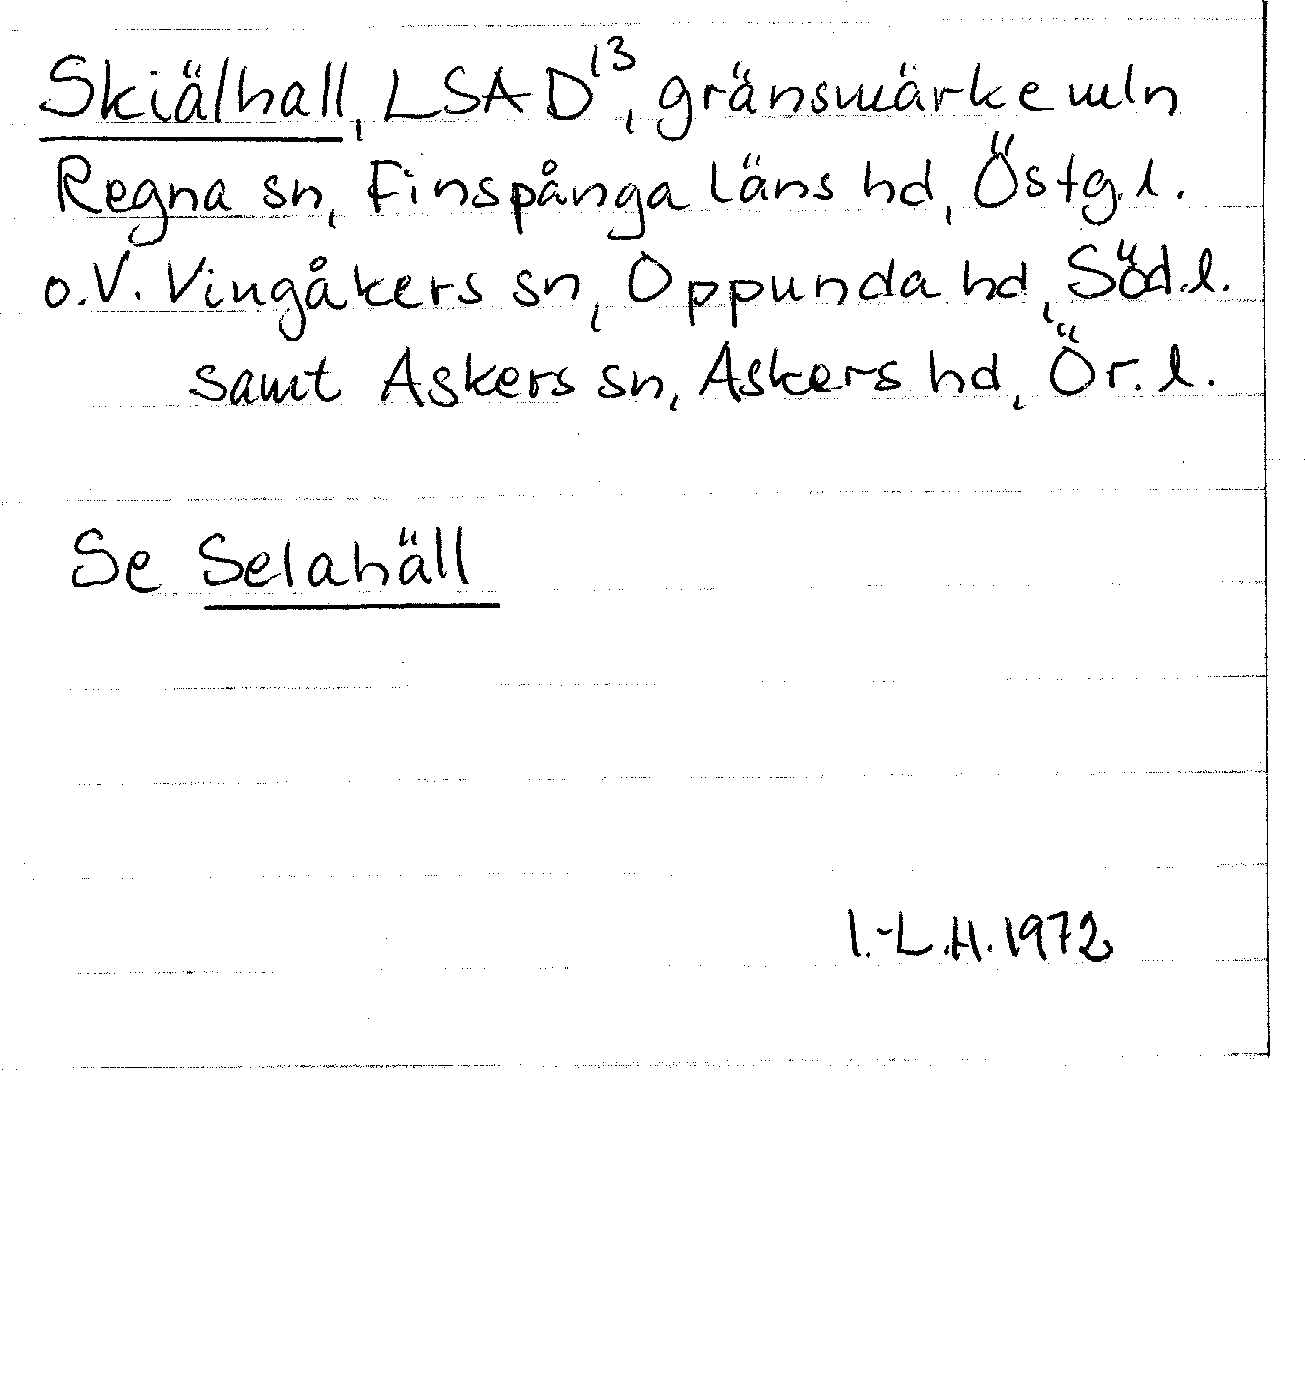 Skiälhall, LSA D¹³, gränsmärke mln
Regna sn, Finspånga läns hd, Östg.l.
o.V. Vingåkers sn, Oppunda hd, Söd.l.
samt Askers sn, Askers hd, Ör.l.
Se Selahäll
I.-L.H. 1972